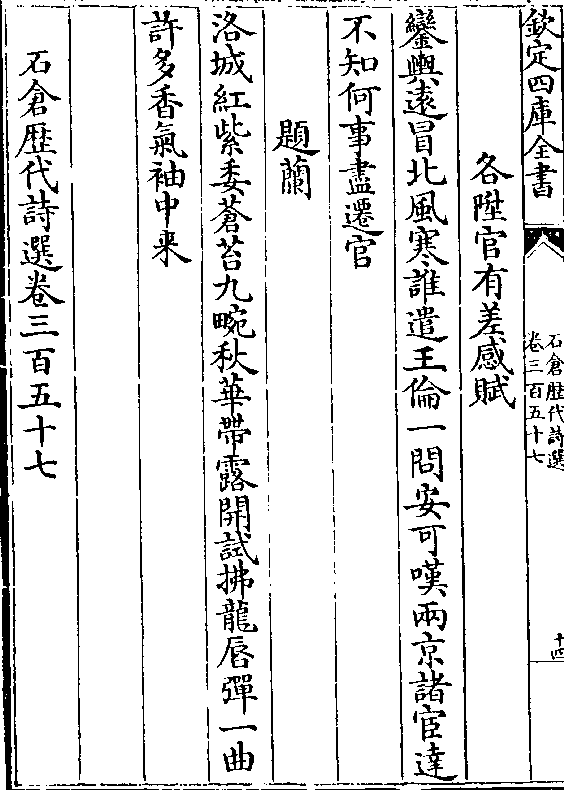 欽定四庫全書
石倉歷代詩選
卷三百五十七
十四
各陞官有差感賦
鑾輿遠冒北風寒誰遣王倫一問安可嘆兩京諸宦達
不知何事盡遷官
題蘭
洛城紅紫委蒼苔九畹秋華帶露開試拂龍唇彈一曲
許多香氣袖中来
石倉歴代詩選卷三百五十七